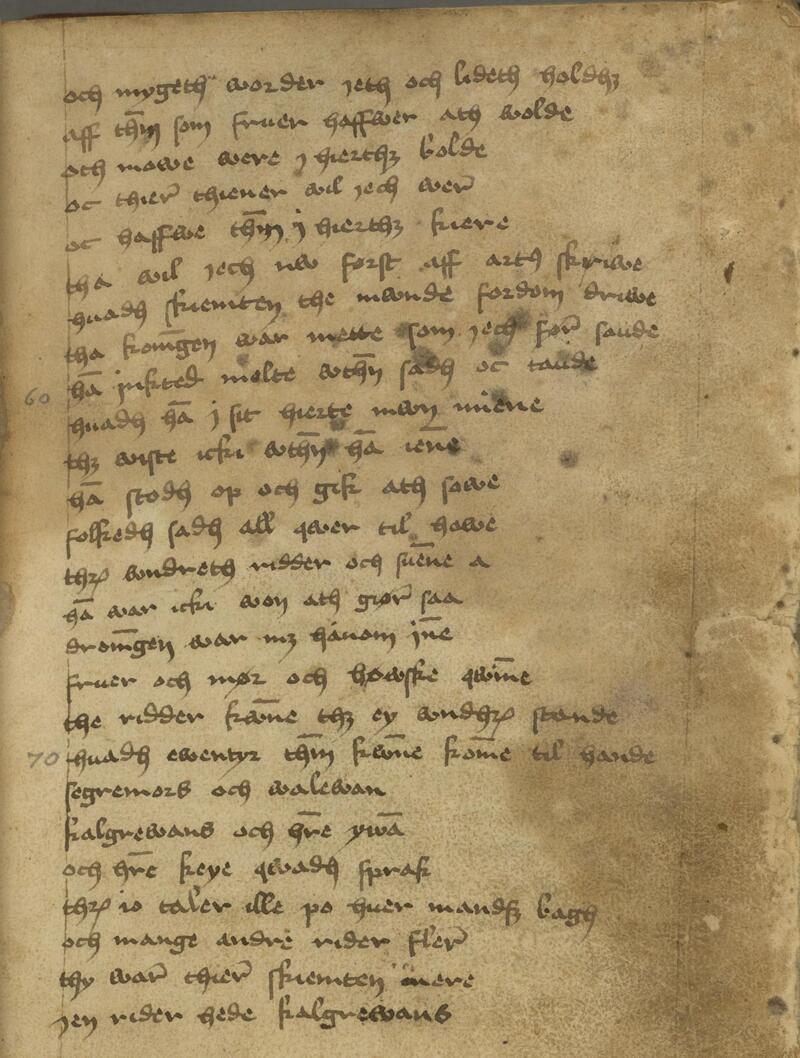 och mygeth worder jeth och lideth holdhꝫ
aff thm̅ som fruer haffwer ath wolde
och mowe were j hierthꝫ bolde
oc thier̅ thiener wil jech wer̅
oc haffwe thm̅ j hierthꝫ kiere
tha wil jech nw først aff arth skriwe
huadh skiemten the mwnde fordom driwe
tha kom̅gen war mette som jech for̅ saude
60 ha̅ jnkted melte wthn̅ sadh oc taude
huadh ha̅ j sit hierte mwn mie̅ne
thꝫ wiste icki wthn̅ ha̅ ie̅ne
ha̅ stodh op och gik ath sowe
folkedh sadh all qwer til howe
thr̅ wndreth ridder och sue̅ne a
ha̅ war icki won ath giør̅ saa
drom̅gen war mꝫ hanom in̅e
fruer och mør och høwske qwin̅e
the ridder kwn̅e thꝫ ey wndhr̅ stande
70 huadh ewentyr thm̅ kwn̅e kom̅e til hande
segremors och walewan
kalgrewans och hr̅e ywa̅
och hr̅e keye qwadh sprak
thr̅ io taler ille po huer mandß bagh
och mange andre rider fler̅
thy war̅ thier̅ skiemten mere
jen rider hede kalgrewans